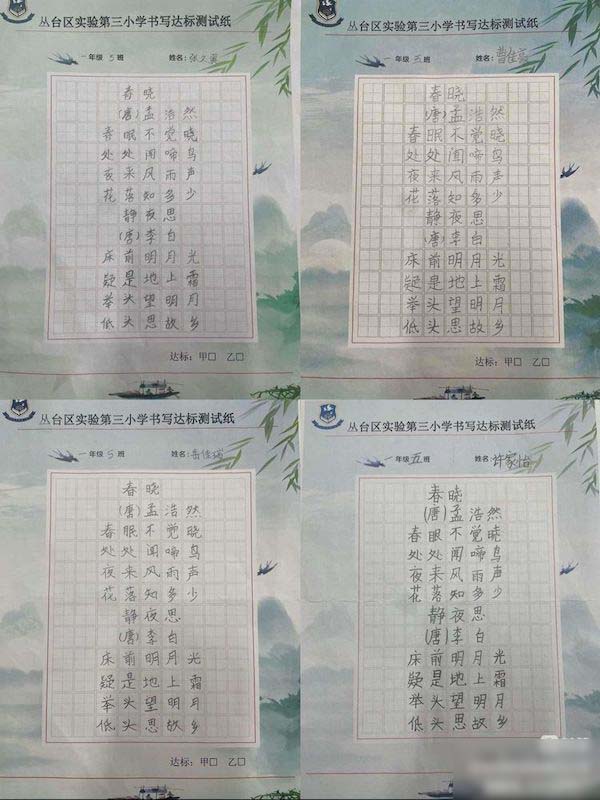 丛台区实验第三小学书写达标测试纸
一年级 5 班 姓名:
春晓
(唐)孟浩然
春眠不觉晓
处处闻啼鸟
夜来风雨声
花落知多少
静夜思
(唐)李白
床前明月光
疑是地上霜
举头望明月
低头思故乡
达标:甲□ 乙□
丛台区实验第三小学书写达标测试纸
一年级 五 班 姓名:曹佳亮
春晓
(唐)孟浩然
春眠不觉晓
处处闻啼鸟
夜来风雨声
花落知多少
静夜思
(唐)李白
床前明月光
疑是地上霜
举头望明月
低头思故乡
达标:甲□ 乙□
丛台区实验第三小学书写达标测试纸
一年级 5 班 姓名:岳佳瑶
春晓
(唐)孟浩然
春眠不觉晓
处处闻啼鸟
夜来风雨声
花落知多少
静夜思
(唐)李白
床前明月光
疑是地上霜
举头望明月
低头思故乡
达标:甲□ 乙□
丛台区实验第三小学书写达标测试纸
一年级 五 班 姓名:许家怡
春晓
(唐)孟浩然
春眠不觉晓
处处闻啼鸟
夜来风雨声
花落知多少
静夜思
(唐)李白
床前明月光
疑是地上霜
举头望明月
低头思故乡